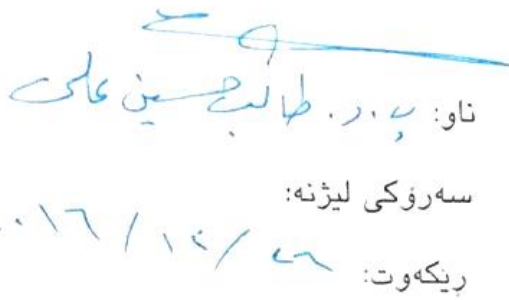 ناو: پ.د. طالب حسين علی
سەرۆکی لیژنە:
ڕێکەوت: ٢٦ / ١٢ / ٢٠١٦